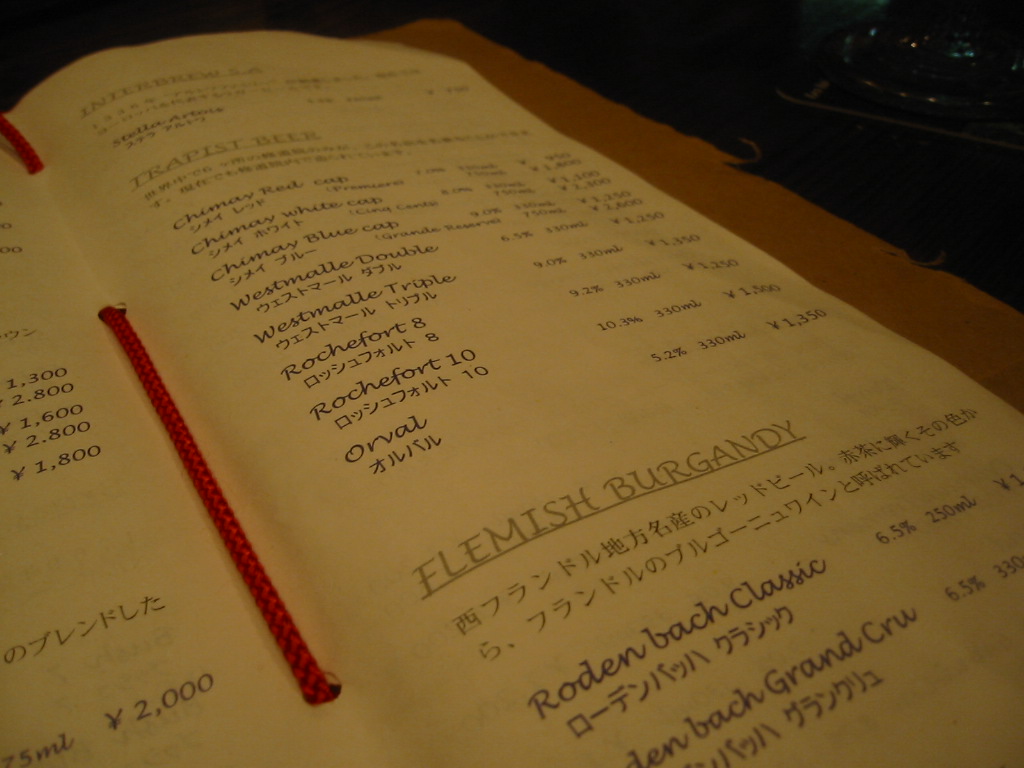 ウン
1,300
¥ 2.800
¥ 1,600
¥ 2.800
¥ 1,800
のブレンドした
¥ 2,000
75ml
INTERBREW S.A
Stella Artois
ステラ アルトワ
TRAPIST BEER
Chimay Red cap (Premiere) 7.0%
シメイ レッド
Chimay white cap (Cinq Cents) 8.0% 330ml ¥ 1,100
シメイ ホワイト 750ml
Chimay Blue cap (Grande Reserve) 9.0% 330ml ¥ 1,250
シメイ ブルー 750ml
Westmalle Double 6.5% 330ml ¥ 1,250
ウェストマール ダブル
Westmalle Triple 9.0% 330ml ¥ 1,350
ウェストマール トリプル
Rochefort 8 9.2% 330ml ¥ 1,250
ロッシュフォルト 8
Rochefort 10 10.3% 330ml ¥ 1,500
ロッシュフォルト 10
Orval 5.2% 330ml ¥ 1,350
オルバル
FLEMISH BURGANDY
西フランドル地方名産のレッドビール。赤茶に輝くその色か
ら、フランドルのブルゴーニュワインと呼ばれています
Roden bach Classic 6.5% 250ml ¥ 1
ローデンバッハ クラシック
den bach Grand Cru 6.5% 330
ンバッハ グランクリュ